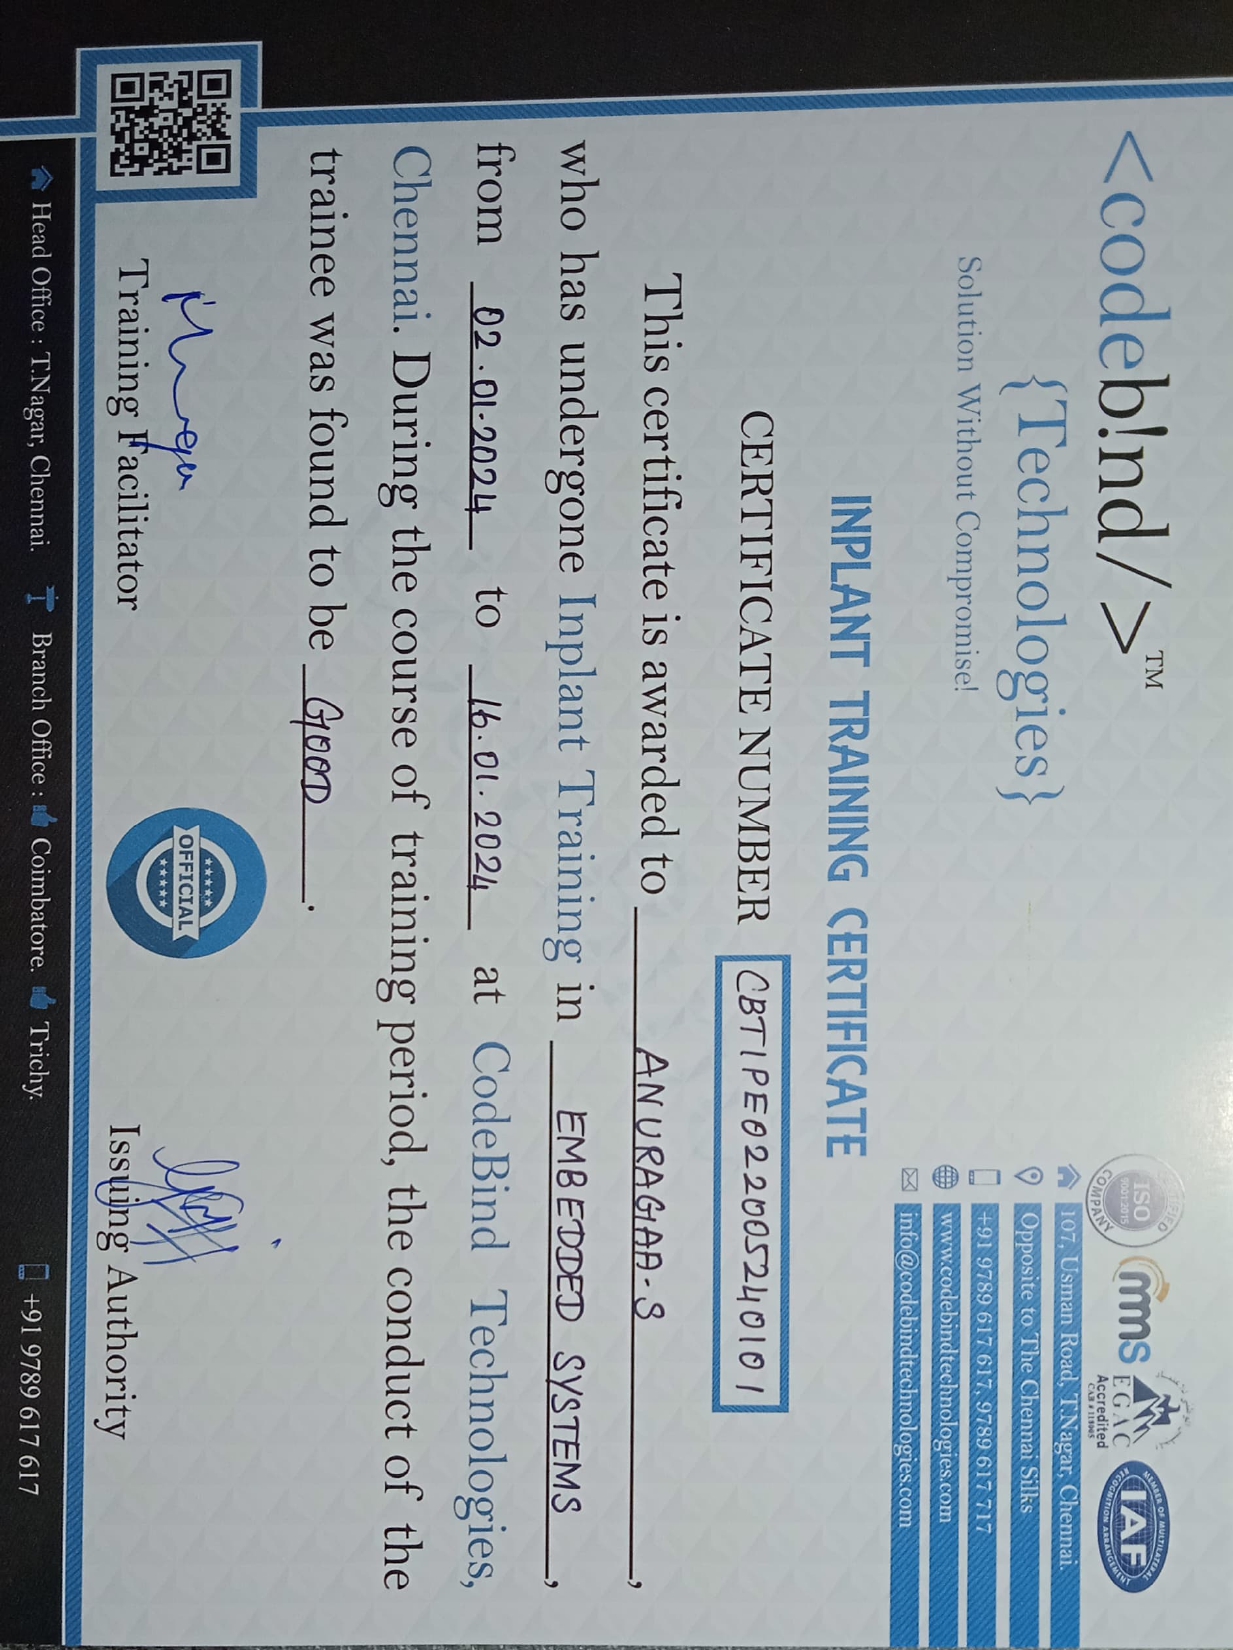 <codeb!nd/>™
{Technologies}
Solution Without Compromise!
CERTIFIED
ISO
9001:2015
COMPANY
mms
EGAC
Accredited
CAB # 118005
MEMBER OF MULTILATERAL
IAF
RECOGNITION ARRANGEMENT
107, Usman Road, T.Nagar, Chennai.
Opposite to The Chennai Silks
+91 9789 617 617, 9789 617 717
www.codebindtechnologies.com
info@codebindtechnologies.com
INPLANT TRAINING CERTIFICATE
CERTIFICATE NUMBER CBTIPE022005240101
This certificate is awarded to ANURAGAA-S,
who has undergone Inplant Training in EMBEDDED SYSTEMS,
from 02.01.2024 to 16.01.2024 at CodeBind Technologies,
Chennai. During the course of training period, the conduct of the
trainee was found to be GOOD.
OFFICIAL
Training Facilitator
Issuing Authority
Head Office : T.Nagar, Chennai. Branch Office : Coimbatore. Trichy. +91 9789 617 617